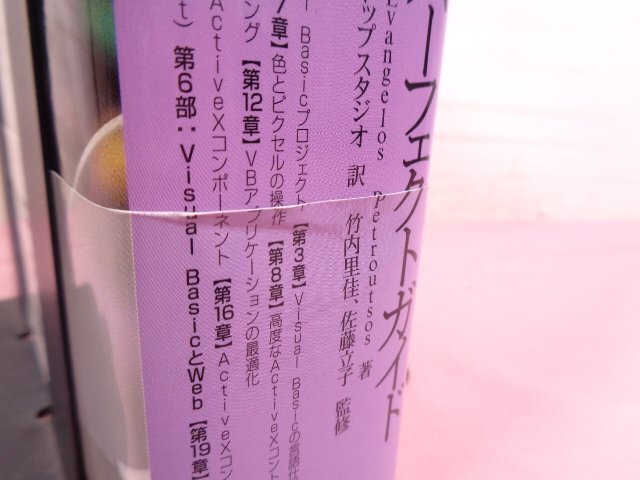 ーフェクトガイド
Evangelos Petroutsos 著
ップスタジオ 訳 竹内里佳、佐藤立子 監修
Basicプロジェクト【第3章】Visual Basicの言語仕
章】色とピクセルの操作【第8章】高度なActiveXコント
ング【第12章】VBアプリケーションの最適化
ActiveXコンポーネント【第16章】ActiveXコン
t) 第6部:Visual BasicとWeb【第19章】